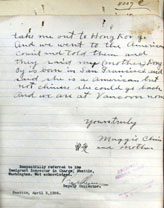 take me out to Hong Kor go
And we went to the American
Council and told them and
they said my mother Hong
By is born in San Francisco and
said she is American but
not chinese she could go back
And we are at Vancouver now
Yours truly
Maggie Chin
and mother
Respectfully referred to the
Immigrant Inspector in Charge, Seattle,
Washington. Not acknowledged.
Deputy Collector.
Seattle, April 2, 1908.